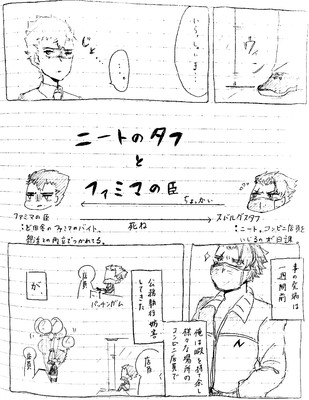 ウィン
いらっしゃいま…
…。
じと…
ニートのタフ
と
ファミマの臣
ちょっかい
死ね
ファミマの臣
:ど田舎のファミマのバイト。
部活との両立でつかれてる。
スドルグスタフ
:ニート。コンビニ店員を
いじるのが日課。
事の発端は
一週間前
俺は暇を持て余し
様々な場所の
コンビニ店員で
公務執行妨害
してきた
店員
パッチンガム
が、
店員
店員